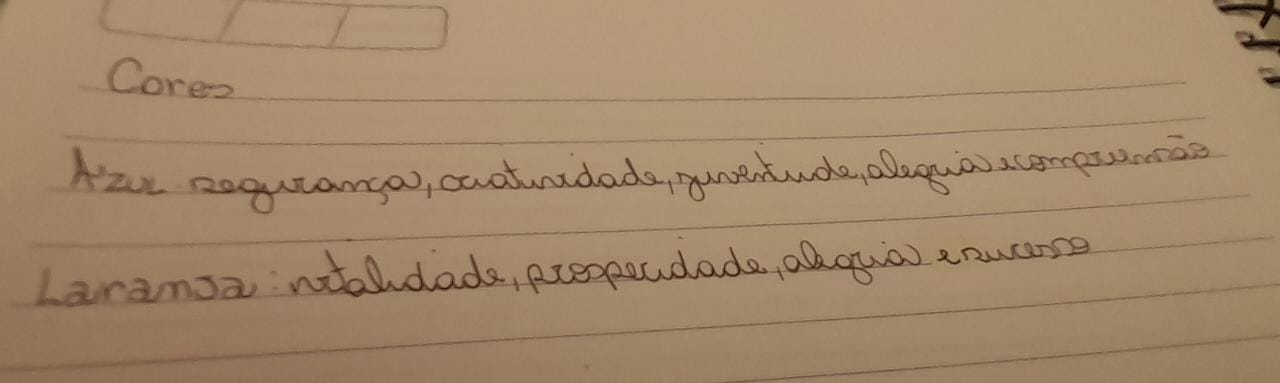 Cores
Azul: segurança, criatividade, juventude, alegria e compreensão
Laranja: vitalidade, prosperidade, alegria e sucesso